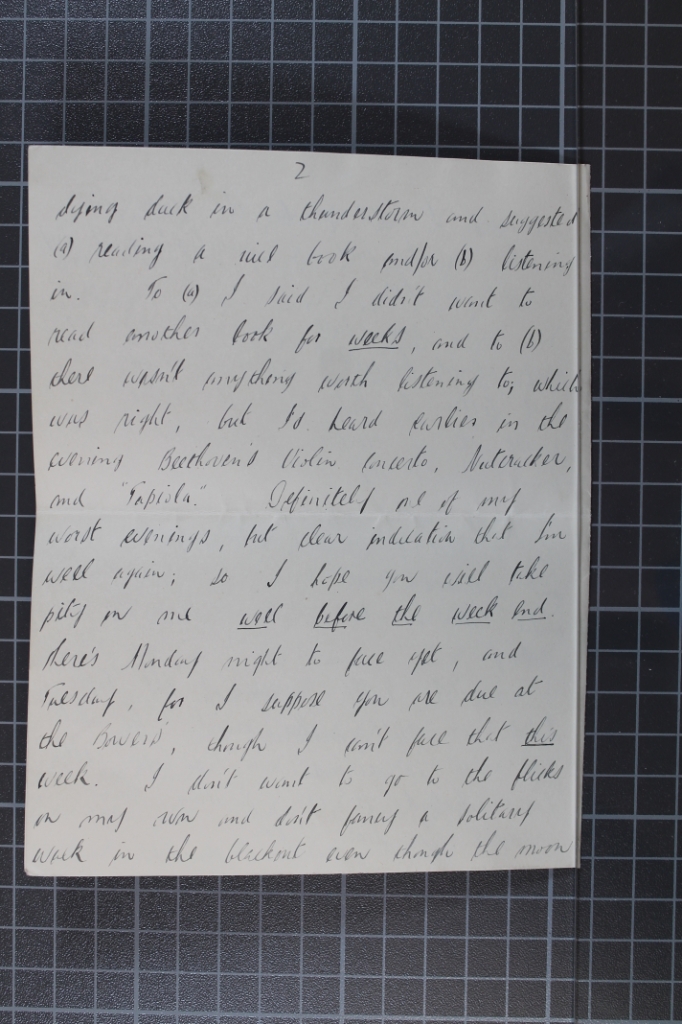 2
dying duck in a thunderstorm and suggested
(a) reading a nice book and/or (b) listening
in. To (a) I said I didn't want to
read another book for weeks, and to (b)
there wasn't anything worth listening to; which
was right, but I'd heard earlier in the
evening Beethoven's Violin Concerto, Nutcracker,
and "Tapiola." Definitely one of my
worst evenings, but clear indication that I'm
well again; so I hope you will take
pity on me well before the week end.
There's Monday night to face yet, and
Tuesday, for I suppose you are due at
the Bowers', though I can't face that this
week. I don't want to go to the flicks
on my own and don't fancy a solitary
walk in the blackout even though the moon